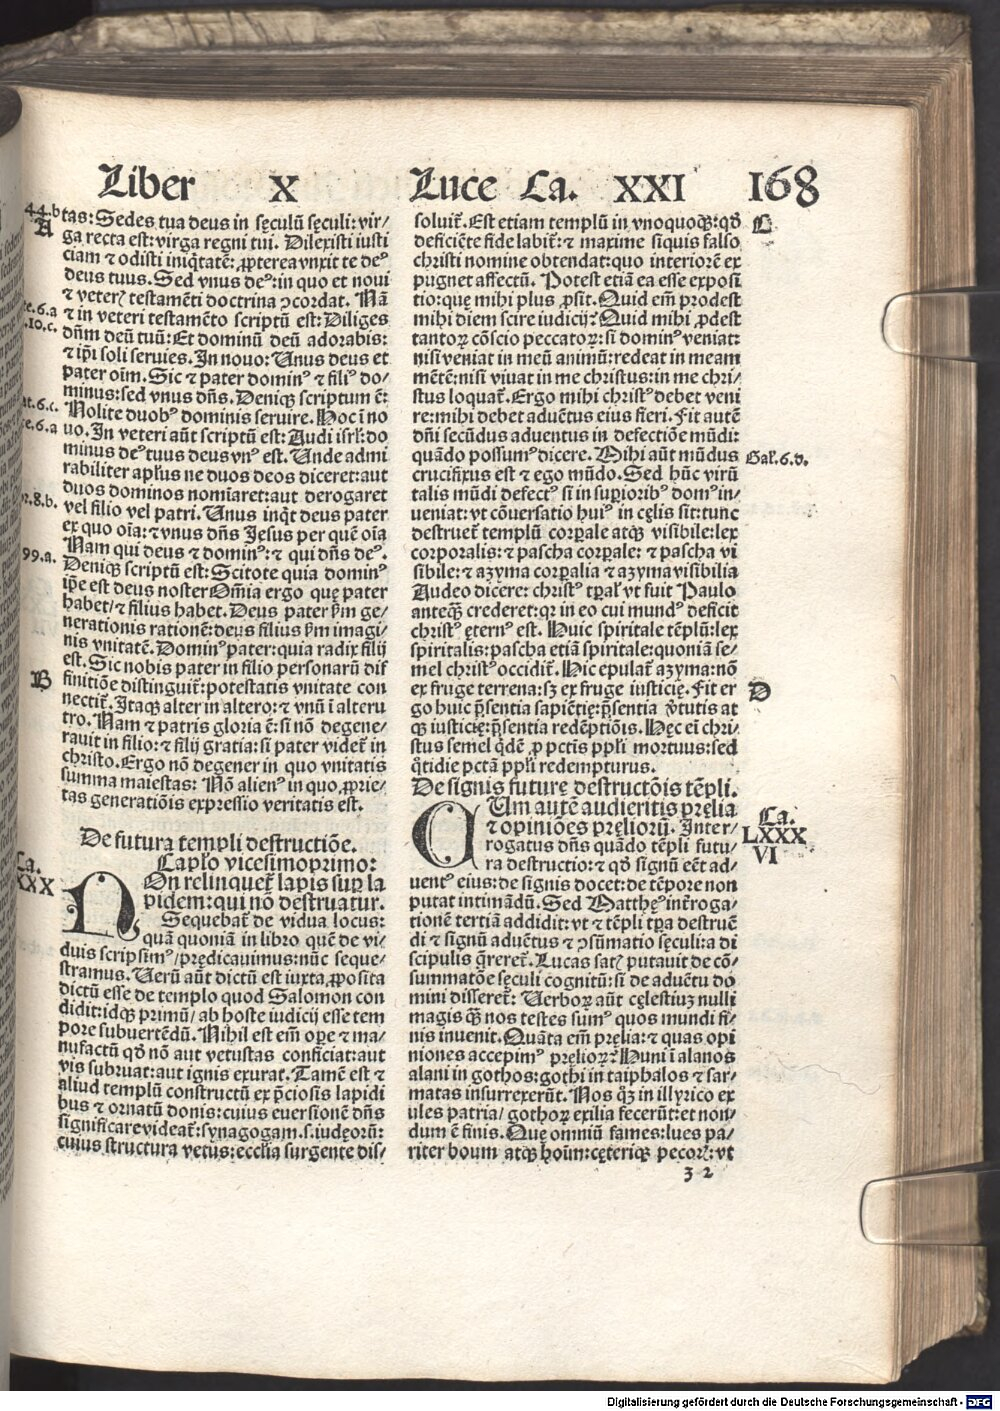 Liber X Luce Ca. XXI 168
44.b
A
tas: Sedes tua deus in sęculū sęculi: vir/
ga recta est: virga regni tui. Dilexisti iusti
ciam ⁊ odisti iniq̄tatē: ꝓpterea vnxit te deꝰ
deus tuus. Sed vnus deꝰ: in quo et noui
⁊ veterꝭ testamēti doctrina ↄcordat. Nā
⁊ in veteri testamēto scriptū est: Diliges
dn̄m deū tuū: Et dominū deū adorabis:
⁊ ip̄i soli seruies. In nouo: Unus deus et
pater oīm. Sic ⁊ pater dominꝰ ⁊ filiꝰ do/
minus: sed vnus dn̄s. Deniqꝫ scriptum ē:
Nolite duobꝰ dominis seruire. Hoc ī no
uo. In veteri aūt scriptū est: Audi isrl̄: do
minus deꝰ tuus deus vnꝰ est. Unde admi
rabiliter apl̄us ne duos deos diceret: aut
duos dominos nomīaret: aut derogaret
vel filio vel patri. Unus inq̄t deus pater
ex quo oīa: ⁊ vnus dn̄s Jesus per quē oīa
Nam qui deus ⁊ dominꝰ: ⁊ qui dn̄s deꝰ.
Deniqꝫ scriptū est: Scitote quia dominꝰ
ip̄e est deus noster Om̄ia ergo quę pater
habet/ ⁊ filius habet. Deus pater ẜm ge/
nerationis rationē: deus filius ẜm imagi/
nis vnitatē. Dominꝰ pater: quia radix filij
est. Sic nobis pater in filio personarū dif
B
finitiōe distinguit̄: potestatis vnitate con
nectit̄. Itaqꝫ alter in altero: ⁊ vnū ī alteru
tro. Nam ⁊ patris gloria ē: si nō degene/
rauit in filio: ⁊ filij gratia: si pater videt̄ in
christo. Ergo nō degener in quo vnitatis
summa maiestas: Nō alienꝰ in quo ꝓprie/
tas generatiōis expressio veritatis est.
De futura templi destructiōe.
Capl̄o vicesimoprimo:
Ca.
XXX
NOn relinquet̄ lapis suꝑ la
pidem: qui nō destruatur.
Sequebat̄ de vidua locus:
quā quoniā in libro quē de vi/
duis scripsimꝰ/ prędicauimus: nūc seque/
stramus. Verū aūt dictū est iuxta ꝓposita
dictū esse de templo quod Salomon con
didit: idqꝫ primū/ ab hoste iudicij esse tem
pore subuertēdū. Nihil est em̄ oꝑe ⁊ ma/
nufactū qd̄ nō aut vetustas conficiat: aut
vis subruat: aut ignis exurat. Tamē est ⁊
aliud templū constructū ex p̄ciosis lapidi
bus ⁊ ornatū donis: cuius euersionē dn̄s
significare videat̄: synagogam .s. iudęorū:
cuius structura vetus: eccl̄ia surgente dis/
soluit̄. Est etiam templū in vnoquoqꝫ: qd̄
C
deficiēte fide labit̄: ⁊ maxime siquis falso
christi nomine obtendat: quo interiorē ex
pugnet affectū. Potest etiā ea esse exposi
tio: quę mihi plus ꝓsit. Quid em̄ prodest
mihi diem scire iudicij? Quid mihi ꝓdest
tantoꝝ cōscio peccatoꝝ: si dominꝰ veniat:
nisi veniat in meū animū: redeat in meam
mētē: nisi viuat in me christus: in me chri/
stus loquat̄. Ergo mihi christꝰ debet veni
re: mihi debet aduētus eius fieri. Fit autē
dn̄i secūdus aduentus in defectiōe mūdi:
quādo possumꝰ dicere. Mihi aūt mūdus
Gal̄.6.d.
crucifixus est ⁊ ego mūdo. Sed hūc virū
talis mūdi defectꝰ si in suꝑioribꝰ domꝰ in/
ueniat: vt cōuersatio huiꝰ in cęlis sit: tunc
destruet̄ templū corꝑale atqꝫ visibile: lex
corporalis: ⁊ pascha corꝑale: ⁊ pascha vi
sibile: ⁊ azyma corꝑalia ⁊ azyma visibilia
Audeo dicere: christꝰ tꝑalꝭ vt fuit Paulo
anteqꝫ̄ crederet: qꝛ in eo cui mundꝰ deficit
christꝰ ęternꝰ est. Huic spiritale tēplū: lex
spiritalis: pascha etiā spiritale: quoniā se/
mel christꝰ occidit̄. Hic epulat̄ azyma: nō
ex fruge terrena: sꝫ ex fruge iusticię. Fit er
D
go huic p̄sentia sapiētię: p̄sentia v̄tutis at
qꝫ iusticię: p̄sentia redēptiōis. Hęc ei chri/
stus semel q̄dē ꝓ pctīs pp̄li mortuus: sed
q̄tidie pctā pp̄li redempturus.
De signis futurę destructōis tēpli.
Ca.
LXXX
VI
CUm autē audieritis pręlia
⁊ opiniōes pręliorū. Inter/
rogatus dn̄s quādo tēpli futu/
ra destructio: ⁊ qd̄ signū eēt ad/
uentꝰ eius: de signis docet: de tēpore non
putat intimādū. Sed Matthęꝰ inēroga/
tionē tertiā addidit: vt ⁊ tēpli tꝑa destruē
di ⁊ signū aduētus ⁊ ↄsūmatio sęculi: a di
scipulis q̄reret̄. Lucas satꝭ putauit de cō/
summatōe sęculi cognitū: si de aduētu do
mini dissereret̄: Verboꝝ aūt cęlestiuꝫ nulli
magis qꝫ̄ nos testes sumꝰ quos mundi fi/
nis inuenit. Quāta em̄ pręlia: ⁊ quas opi
niones accepimꝰ pręlioꝝ? Huni ī alanos
alani in gothos: gothi in taiphalos ⁊ sar/
matas insurrexerūt. Nos qꝫ̄ in illyrico ex
ules patria/ gothoꝝ exilia fecerūt: et non/
dum ē finis. Quę omniū fames: lues pa/
riter boum atqꝫ hoīm: cęteriqꝫ pecorꝭ: vt
3 2
Digitalisierung gefördert durch die Deutsche Forschungsgemeinschaft - DFG